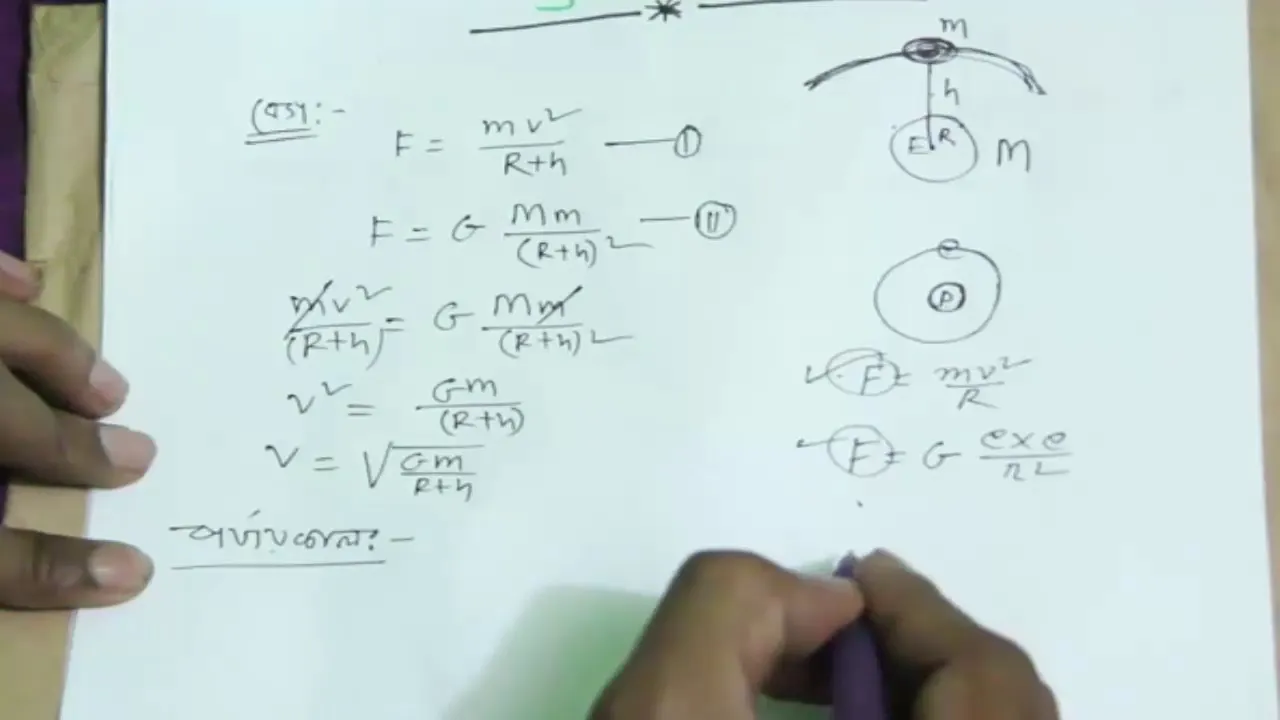 বেগ:-
F = mv²/R+h —— I
F = G Mm/(R+h)² —— II
mv²/(R+h) = G Mm/(R+h)²
v² = Gm/(R+h)
v = √Gm/R+h
পর্যায়কাল:-
m
h
E R
M
e
P
F = mv²/R
F = G e×e/r²